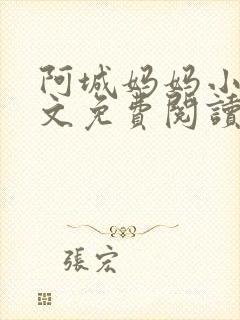 阿城妈妈小
文免費閱讀
張宏